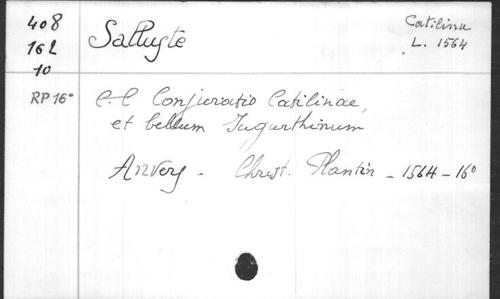 408
162
10
RP 16°
Salluste
Catilina
L. 1564
C.C Conjuratio Catilinae,
et bellum Jugurthinum
Anvers - Christ. Plantin - 1564 - 16°